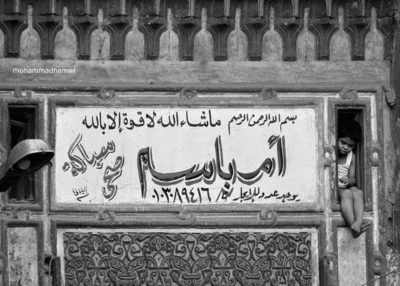 mohammadhamwi
بسم الله الرحمن الرحيم ماشاء الله لا قوة إلا بالله
أم باسم
سباكة
صحى
يوجد عدد للإيجار ٠١٠٣٨٩٤١٦